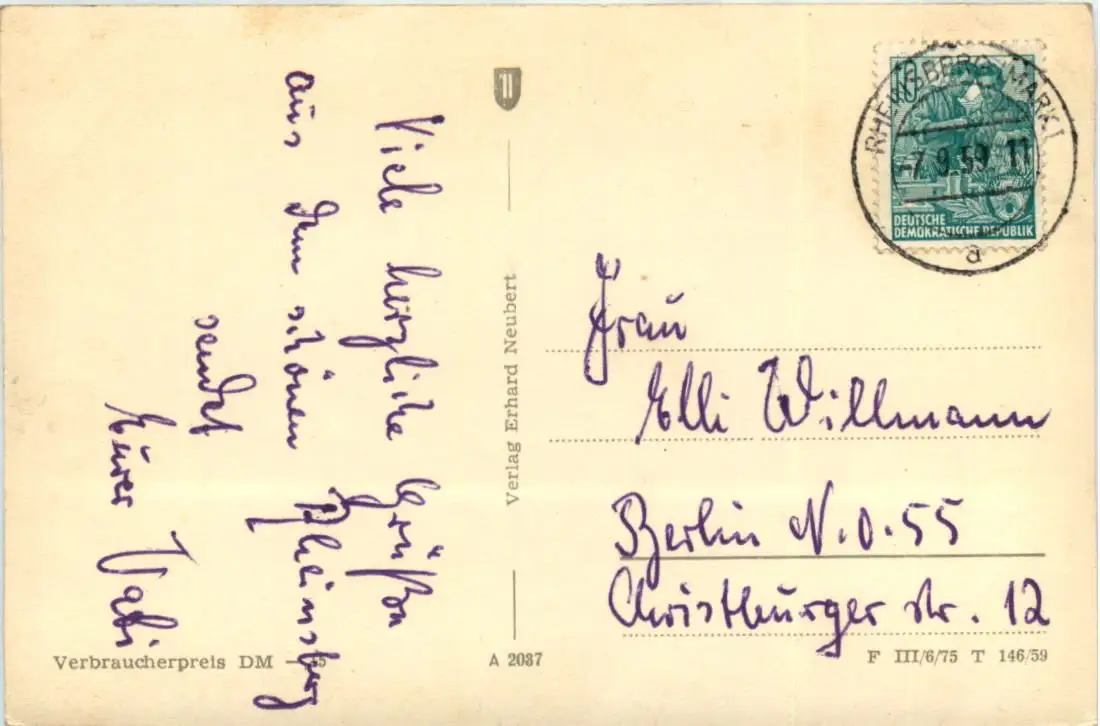 Viele herzliche Grüße
aus dem schönen Rheinsberg
sendet
Eurer Vati
Verlag Erhard Neubert
10
RHEINSBERG (MARK) 1
-7.9.59 11
a
DEUTSCHE
DEMOKRATISCHE REPUBLIK
Frau
Elli Willmann
Berlin N.O.55
Christburger str. 12
Verbraucherpreis DM
A 2037
F III/6/75 T 146/59